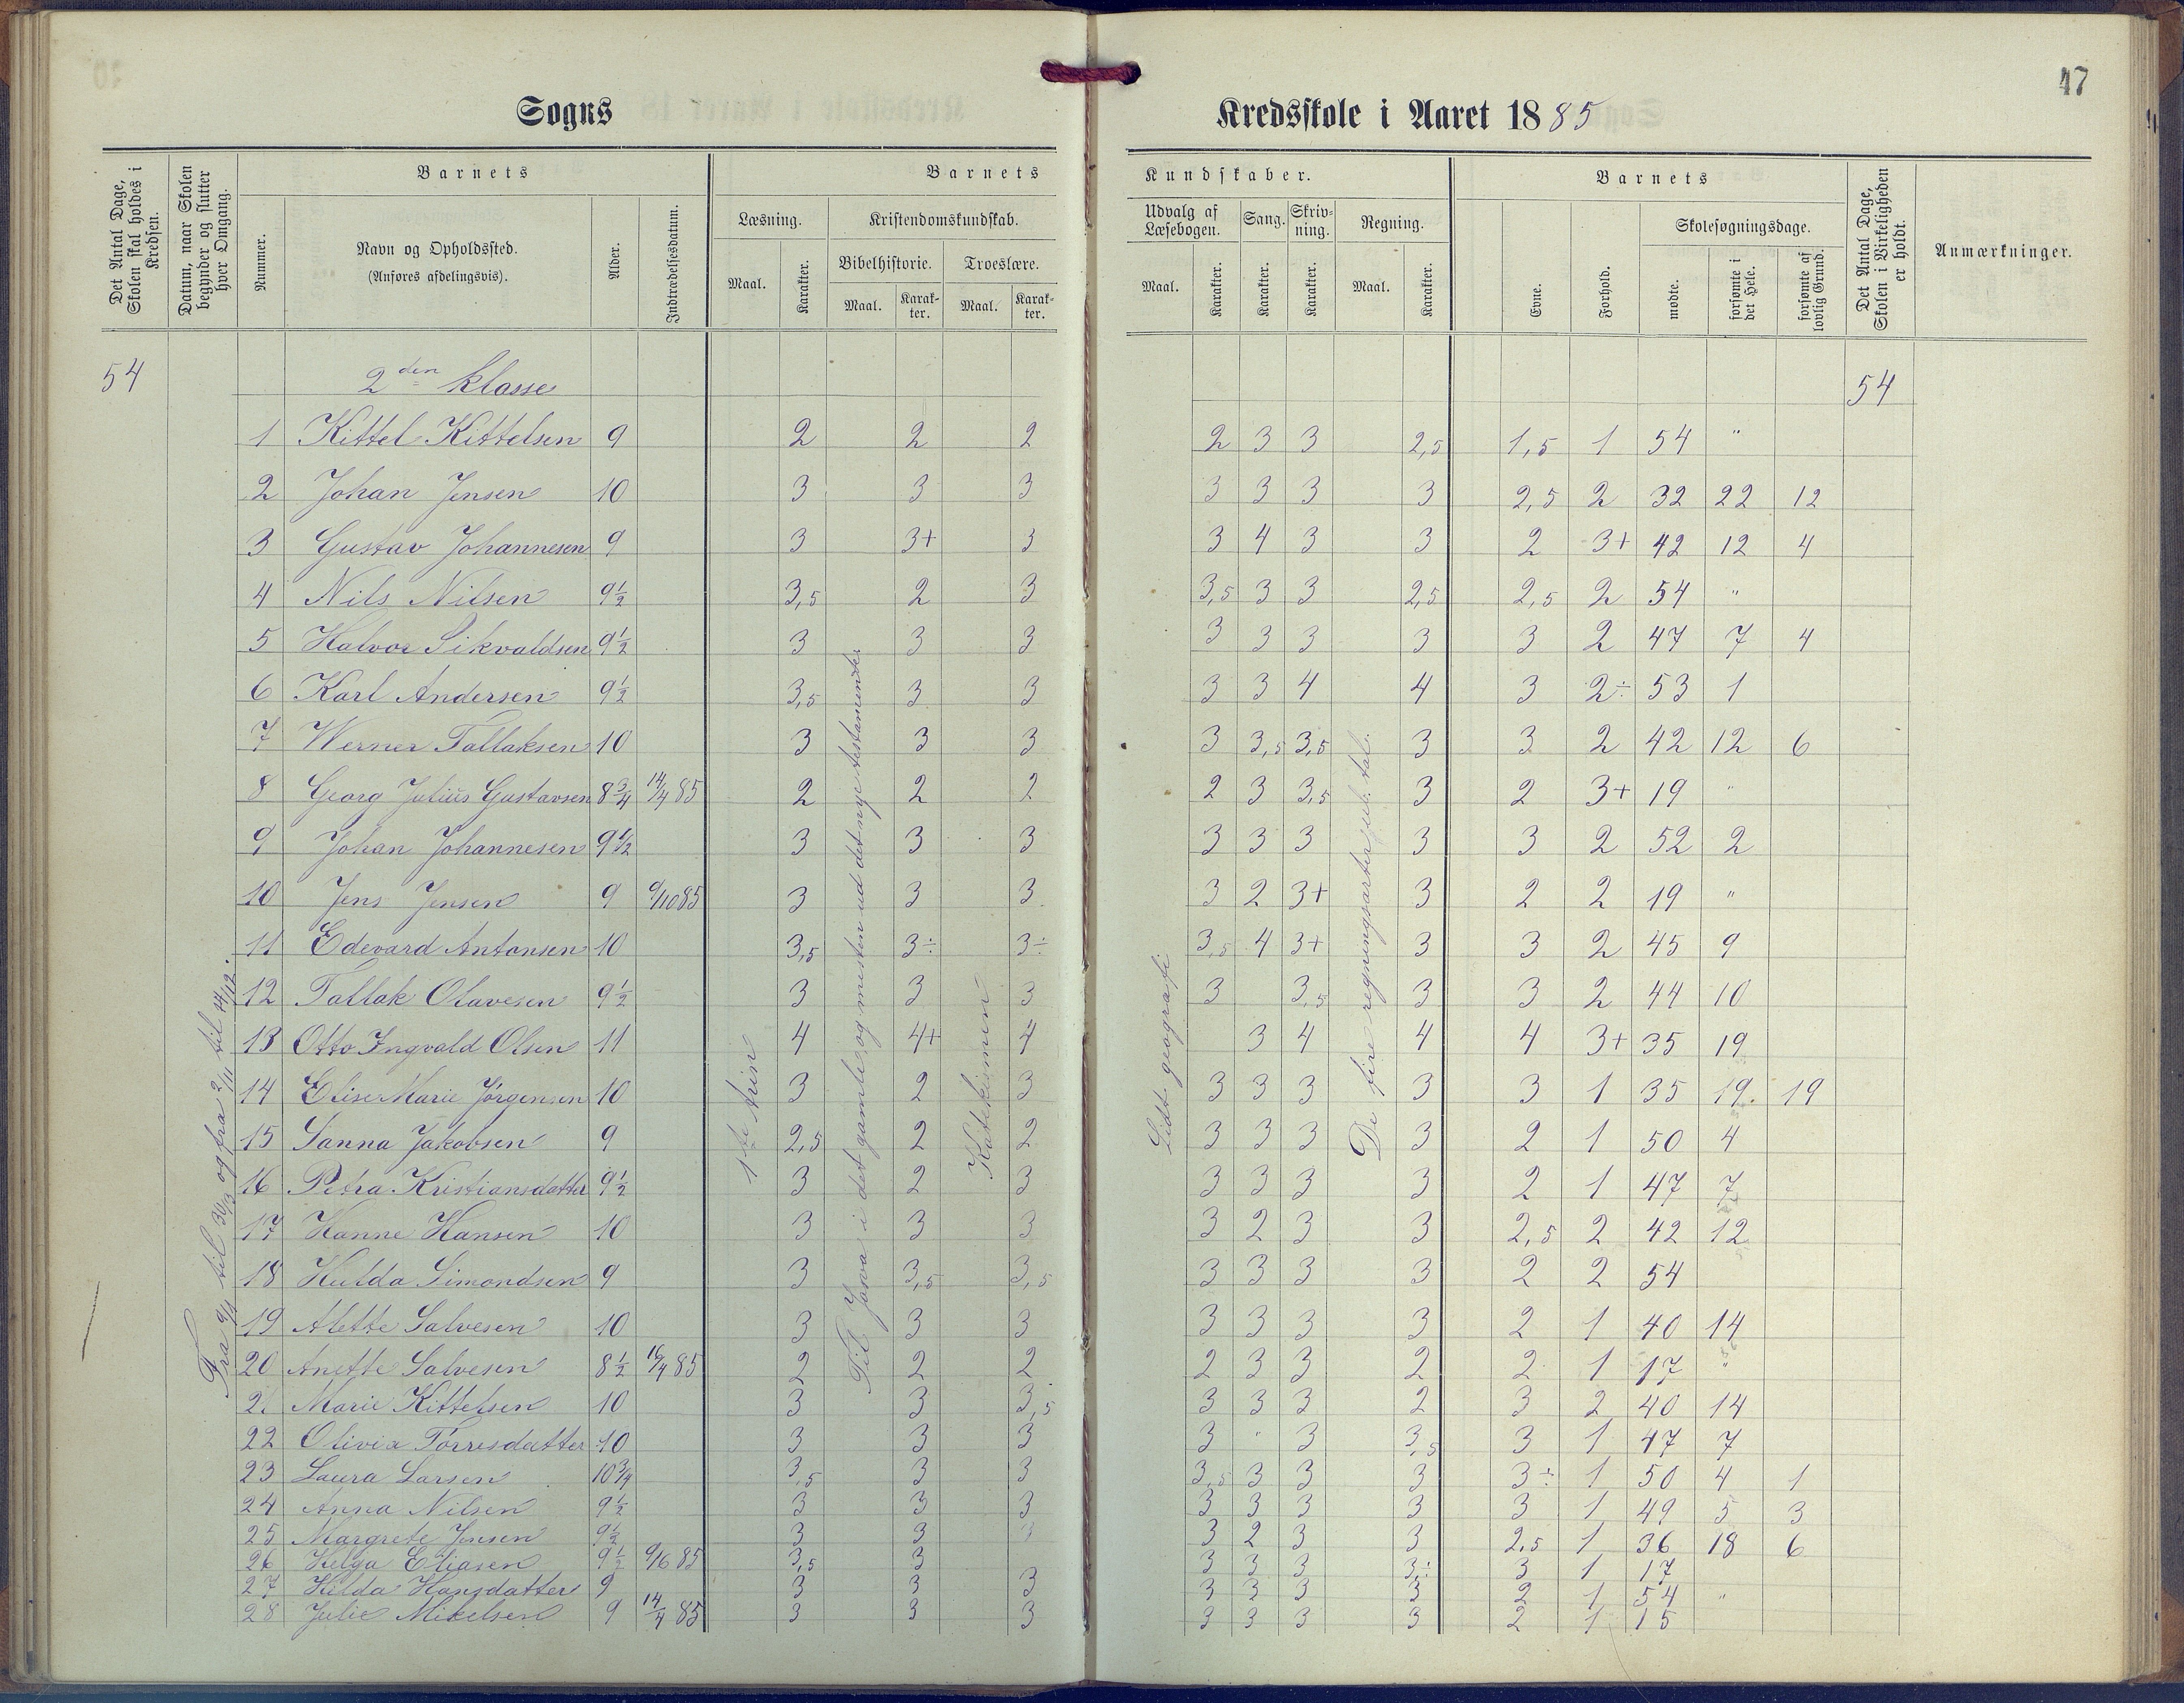 47
Sogns Kredsskole i Aaret 1885
Det Antal Dage, Skolen skal holdes i Kredsen.
Datum, naar Skolen begynder og slutter hver Omgang.
Barnets
Nummer.
Navn og Opholdssted.
(Anføres afdelingsvis).
Alder.
Indtrædelsesdatum.
Barnets Kundskaber.
Læsning.
Maal. Karakter.
Kristendomskundskab.
Bibelhistorie. Troeslære.
Maal. Karakter. Maal. Karakter.
Udvalg af Læsebogen.
Maal. Karakter.
Sang.
Karakter.
Skrivning.
Karakter.
Regning.
Maal. Karakter.
Barnets
Evne. Forhold.
Skolesøgningsdage.
mødte. forsømte i det Hele. forsømte af lovlig Grund.
Det Antal Dage, Skolen i Virkeligheden er holdt.
Anmærkninger.
54 2den klasse 54
1 Kittel Kittelsen 9 2 2 2 2 3 3 2,5 1,5 1 54 "
2 Johan Jensen 10 3 3 3 3 3 3 3 2,5 2 32 22 12
3 Gustav Johannesen 9 3 3+ 3 3 4 3 3 2 3+ 42 12 4
4 Nils Nilsen 9½ 3,5 2 3 3,5 3 3 2,5 2,5 2 54 "
5 Halvor Sikvaldsen 9½ 3 3 3 3 3 3 3 3 2 47 7 4
6 Karl Andersen 9½ 3,5 3 3 3 3 4 4 3 2÷ 53 1
7 Werner Tallaksen 10 3 3 3 3 3,5 3,5 3 3 2 42 12 6
8 Georg Julius Gustavsen 8¾ 14/4 85 2 2 2 2 3 3,5 3 2 3+ 19 "
9 Johan Johannesen 9½ 3 3 3 3 3 3 3 3 2 52 2
10 Jens Jensen 9 9/10 85 3 3 3 3 2 3+ 3 2 2 19 "
11 Edevard Antonsen 10 3,5 3÷ 3÷ 3,5 4 3+ 3 3 2 45 9
12 Tallak Olavesen 9½ 3 3 3 3 3,5 3 3 2 44 10
13 Otto Ingvald Olsen 11 4 4+ 4 3 4 4 4 3+ 35 19
14 Elise Marie Jørgensen 10 3 2 3 3 3 3 3 3 1 35 19 19
15 Sanna Jakobsen 9 2,5 2 2 3 3 3 3 2 1 50 4
16 Petra Kristiansdatter 9½ 3 2 3 3 3 3 3 2 1 47 7
17 Hanne Hansen 10 3 3 3 3 2 3 3 2,5 2 42 12
18 Hulda Simondsen 9 3 3,5 3,5 3 3 3 3 2 2 54
19 Alette Salvesen 10 3 3 3 3 3 3 3 2 1 40 14
20 Anette Salvesen 8½ 16/4 85 2 2 2 2 3 3 2 2 1 17 "
21 Marie Kittelsen 10 3 3 3,5 3 3 3 2 3 2 40 14
22 Olivia Torresdatter 10 3 3 3 3 " 3 3,5 3 1 47 7
23 Laura Larsen 10¾ 3,5 3 3 3,5 3 3 3 3÷ 1 50 4 1
24 Anna Nilsen 9½ 3 3 3 3 3 3 3 3 1 49 5 3
25 Margrete Jensen 9½ 3 3 3 3 2 3 3 2,5 1 36 18 6
26 Helga Eliasen 9½ 9/16 85 3,5 3 3 3 3 3÷ 3 1 17
27 Hilda Hansdatter 9 3 3 3 3 3 3 3 2 1 54 "
28 Julie Mikelsen 9 14/4 85 3 3 3 3 3 3 3 2 1 15
Fra 9/1 til 30/3 og fra 2/11 til 14/12.
1ste trin
Til Josva i det gamle og mesten ud det nye testamente
Katekismen
Lidt geografi
De fire regningsarter i tal.